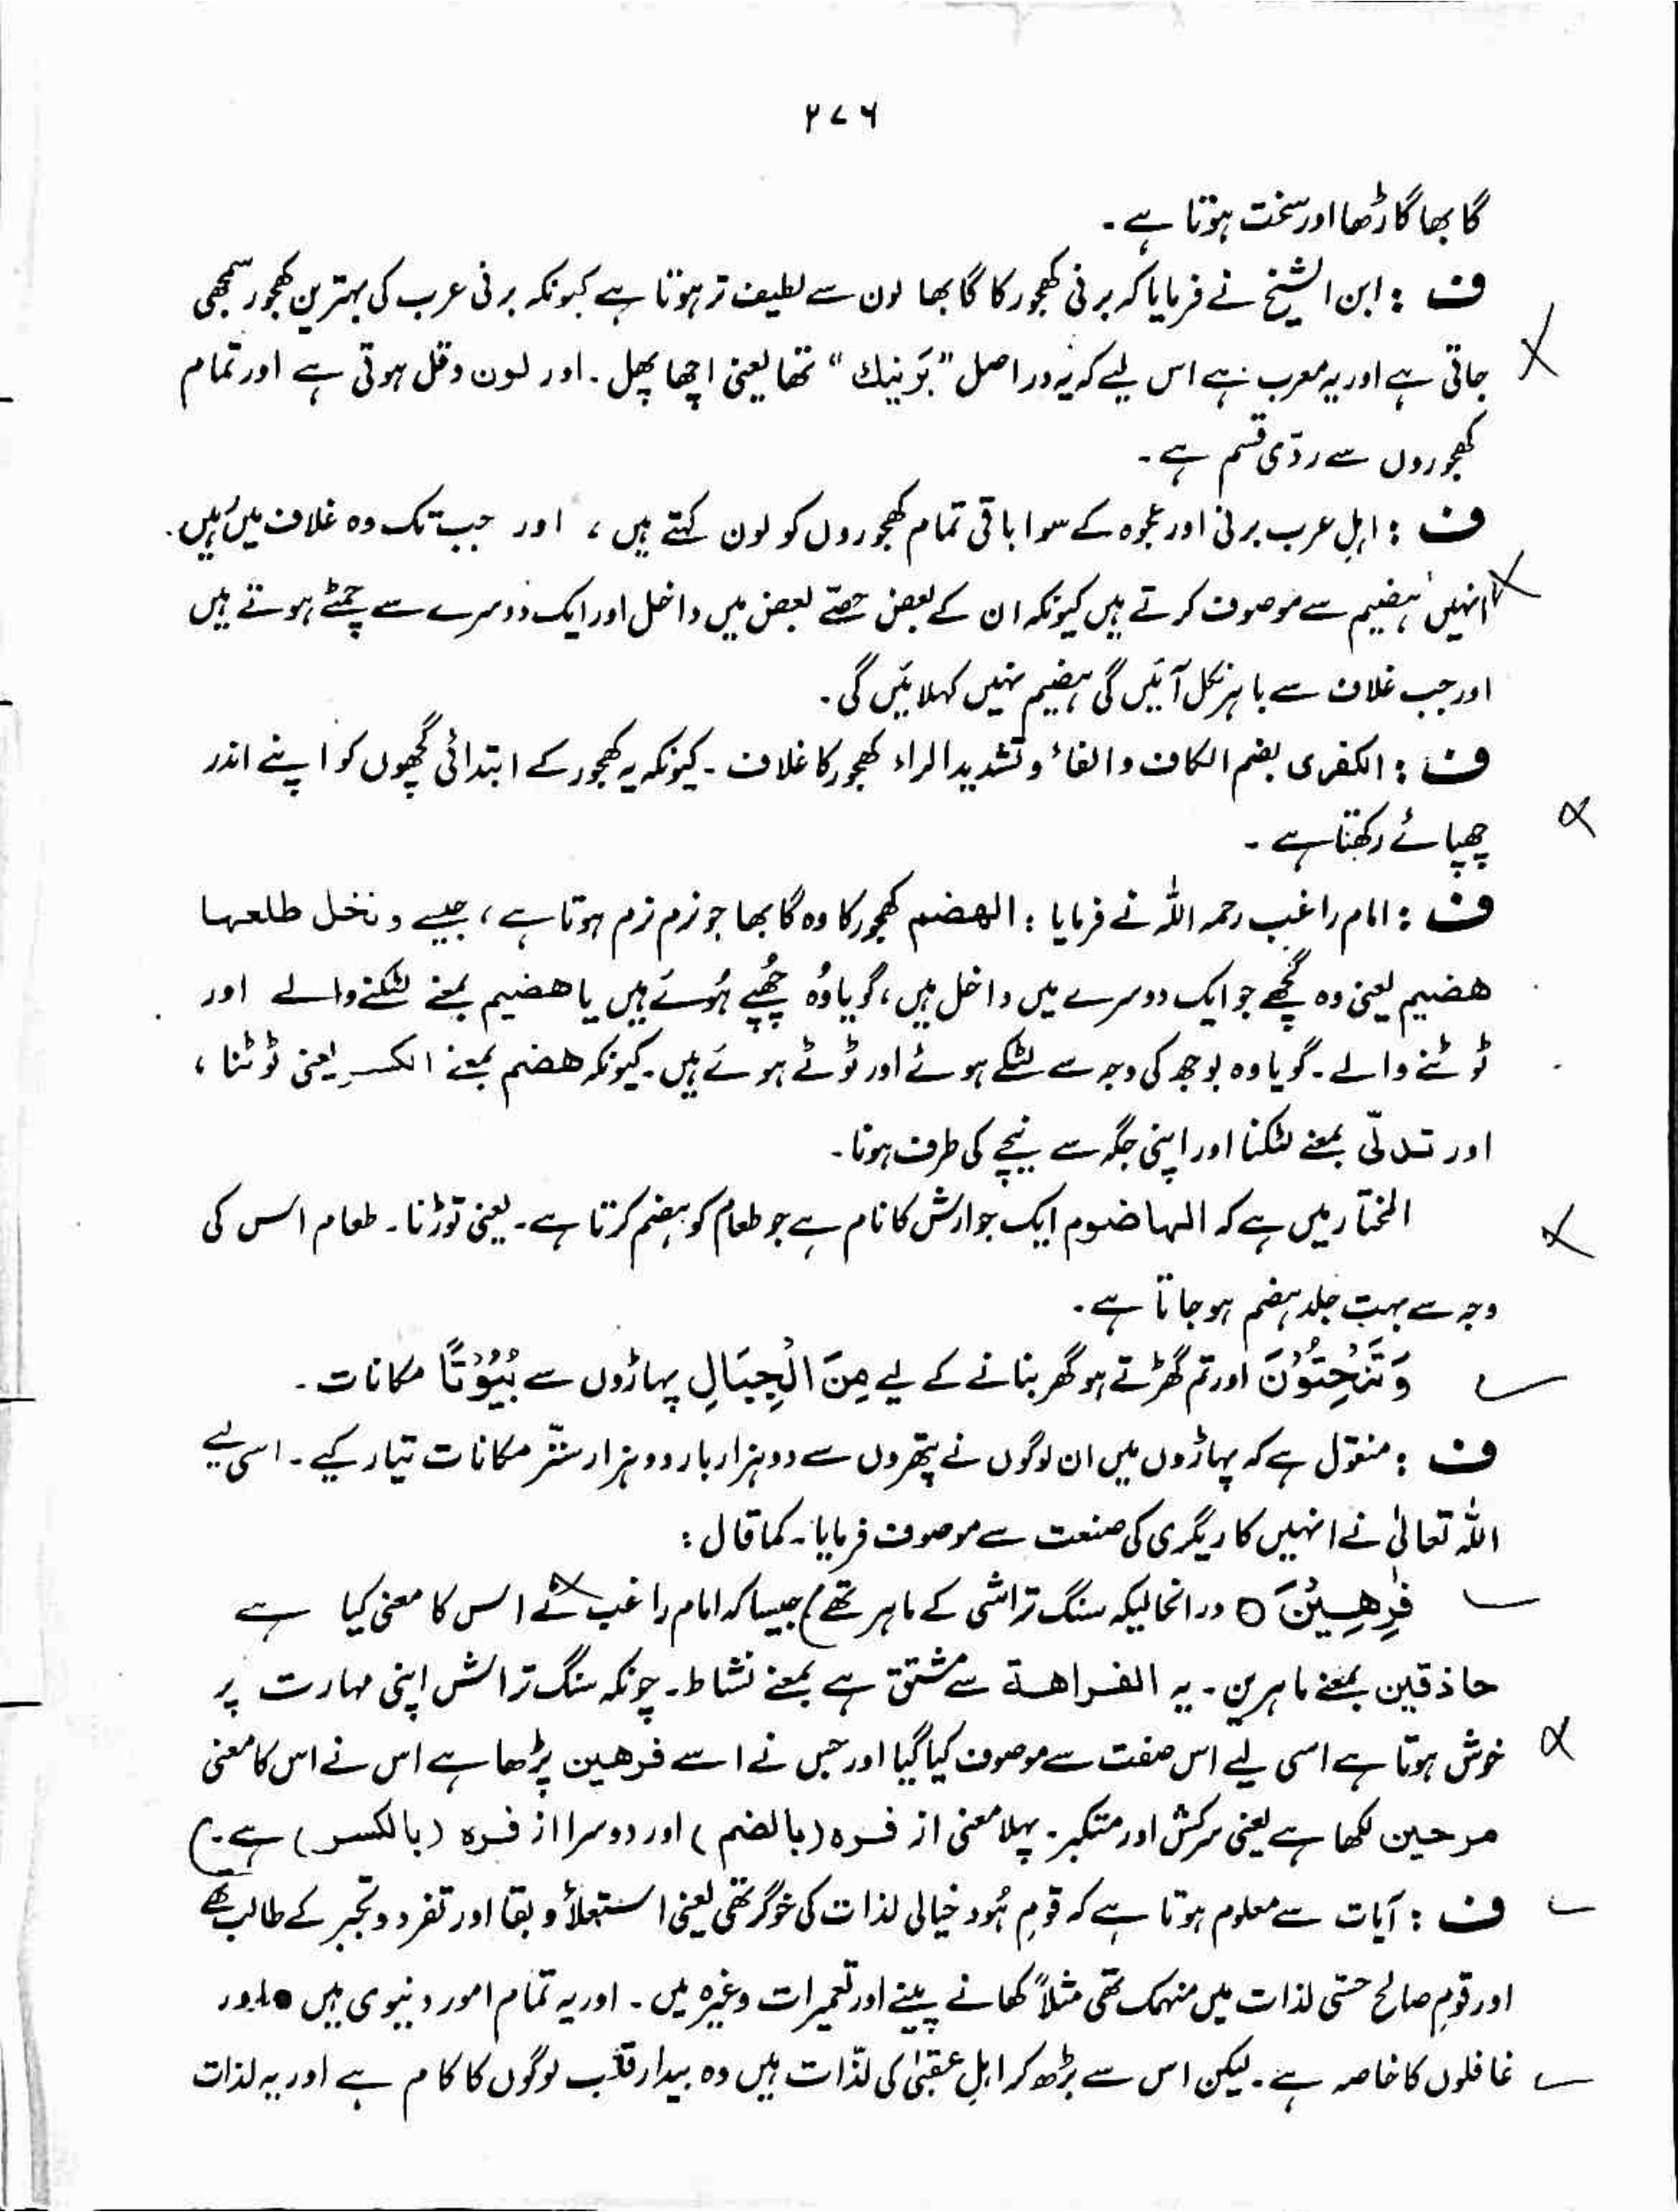 ۲۷۶
گابھا گاڑھا اور سخت ہوتا ہے۔
ف : ابن الشیخ نے فرمایا کہ برنی کھجور کا گابھا لون سے لطیف تر ہوتا ہے کیونکہ برنی عرب کی بہترین کھجور سمجھی
جاتی ہے اور یہ معرب ہے اس لیے کہ یہ دراصل "بَرنیك" تھا یعنی اچھا پھل۔ اور لون دقل ہوتی ہے اور تمام
کھجوروں سے ردّی قسم ہے۔
ف : اہلِ عرب برنی اور عجوہ کے سوا باقی تمام کھجوروں کو لون کہتے ہیں ، اور جب تک وہ غلاف میں ہیں۔
انہیں ہضیم سے موصوف کرتے ہیں کیونکہ ان کے بعض حصّے بعض میں داخل اور ایک دوسرے سے چمٹے ہوتے ہیں
اور جب غلاف سے باہر نکل آئیں گی ہضیم نہیں کہلائیں گی۔
ف : الکفری بضم الکاف والفاء وتشدید الراء کھجور کا غلاف۔ کیونکہ یہ کھجور کے ابتدائی گچھوں کو اپنے اندر
چھپائے رکھتا ہے۔
ف : امام راغب رحمہ اللہ نے فرمایا : الھضم کھجور کا وہ گابھا جو نرم نرم ہوتا ہے ، جیسے ونخل طلعہا
ھضیم یعنی وہ گچھے جو ایک دوسرے میں داخل ہیں ، گویا وُہ چُھپے ہُوئے ہیں یا ھضیم بمعنے لٹکنے والے اور
ٹوٹنے والے۔ گویا وہ بوجھ کی وجہ سے لٹکے ہوئے اور ٹوٹے ہوئے ہیں۔ کیونکہ ھضم بمعنے الکسر یعنی ٹوٹنا ،
اور تدلّی بمعنے لٹکنا اور اپنی جگہ سے نیچے کی طرف ہونا۔
المختار میں ہے کہ الہاضوم ایک جوارش کا نام ہے جو طعام کو ہضم کرتا ہے۔ یعنی توڑنا۔ طعام اس کی
وجہ سے بہت جلد ہضم ہو جاتا ہے۔
وَتَنْحِتُوْنَ اور تم گھڑتے ہو گھر بنانے کے لیے مِنَ الْجِبَالِ پہاڑوں سے بُیُوْتًا مکانات۔
ف : منقول ہے کہ پہاڑوں میں ان لوگوں نے پتھروں سے دو ہزار بار دو ہزار ستّر مکانات تیار کیے۔ اسی لیے
اللہ تعالیٰ نے انہیں کاریگری کی صنعت سے موصوف فرمایا۔ کما قال :
فٰرِھِیْنَ ۝ درانحالیکہ سنگ تراشی کے ماہر تھے) جیسا کہ امام راغب نے اس کا معنی کیا ہے
حاذقین بمعنے ماہرین۔ یہ الفراھة سے مشتق ہے بمعنے نشاط۔ چونکہ سنگ تراش اپنی مہارت پر
خوش ہوتا ہے اسی لیے اس صفت سے موصوف کیا گیا اور جس نے اسے فرھین پڑھا ہے اس نے اس کا معنی
مرحین لکھا ہے یعنی سرکش اور متکبر۔ پہلا معنی از فرہ (بالضم) اور دوسرا از فرہ (بالکسر) ہے۔)
ف : آیات سے معلوم ہوتا ہے کہ قومِ ہُود خیالی لذات کی خوگر تھی یعنی استعلاء و بقا اور تفرد و تجبر کے طالب تھے
اور قومِ صالح حسّی لذات میں منہمک تھی مثلاً کھانے پینے اور تعمیرات وغیرہ میں۔ اور یہ تمام امور دنیوی ہیں اور
غافلوں کا خاصہ ہے۔ لیکن اس سے بڑھ کر اہلِ عقبیٰ کی لذّات ہیں وہ بیدار قلب لوگوں کا کام ہے اور یہ لذات